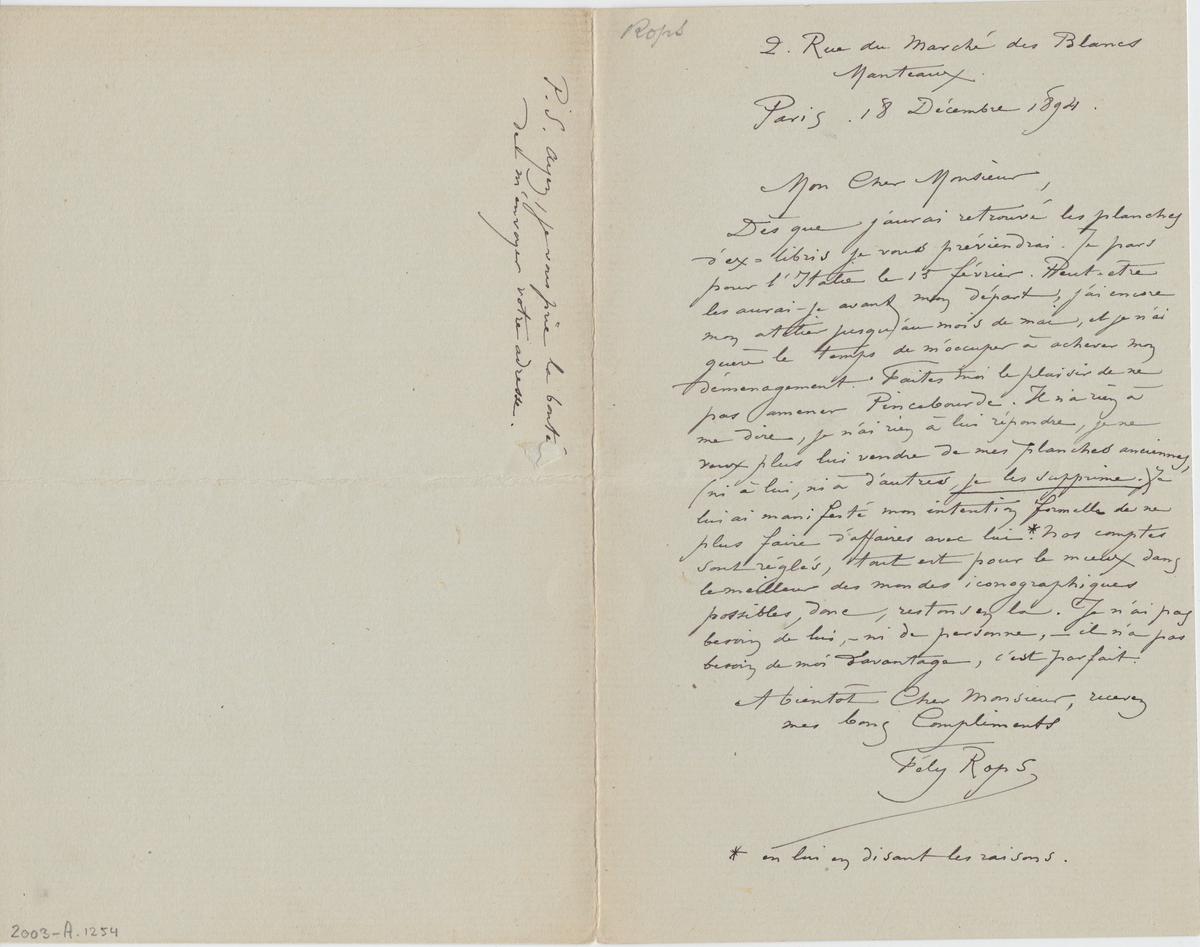 Rops
2. Rue du Marché des Blancs
Manteaux.
Paris. 18 Décembre 1894.
Mon Cher Monsieur,
Dès que j'aurai retrouvé les planches
d'ex=libris je vous préviendrai. Je pars
pour l'Italie le 15 février. Peut-être
les aurai-je avant mon départ, j'ai encore
mon atelier jusqu'au mois de mai, et je n'ai
guère le temps de m'occuper à achever mon
déménagement. Faites moi le plaisir de ne
pas amener Pincebourde. Il n'a rien à
me dire, je n'ai rien à lui répondre, je ne
veux plus lui vendre de mes planches anciennes,
(ni à lui, ni à d'autres, je les supprime.) Je
lui ai manifesté mon intention formelle de ne
plus faire d'affaires avec lui.* Nos comptes
sont réglés, tout est pour le mieux dans
le meilleur des mondes iconographiques
possibles, donc, restons en là. Je n'ai pas
besoin de lui, – ni de personne, – il n'a pas
besoin de moi davantage, c'est parfait.
A bientôt Cher Monsieur, recevez
mes bons Compliments
Fély Rops
* en lui en disant les raisons.
P.S. ayez, je vous prie la bonté
de m'envoyer votre adresse.
2003-A.1254